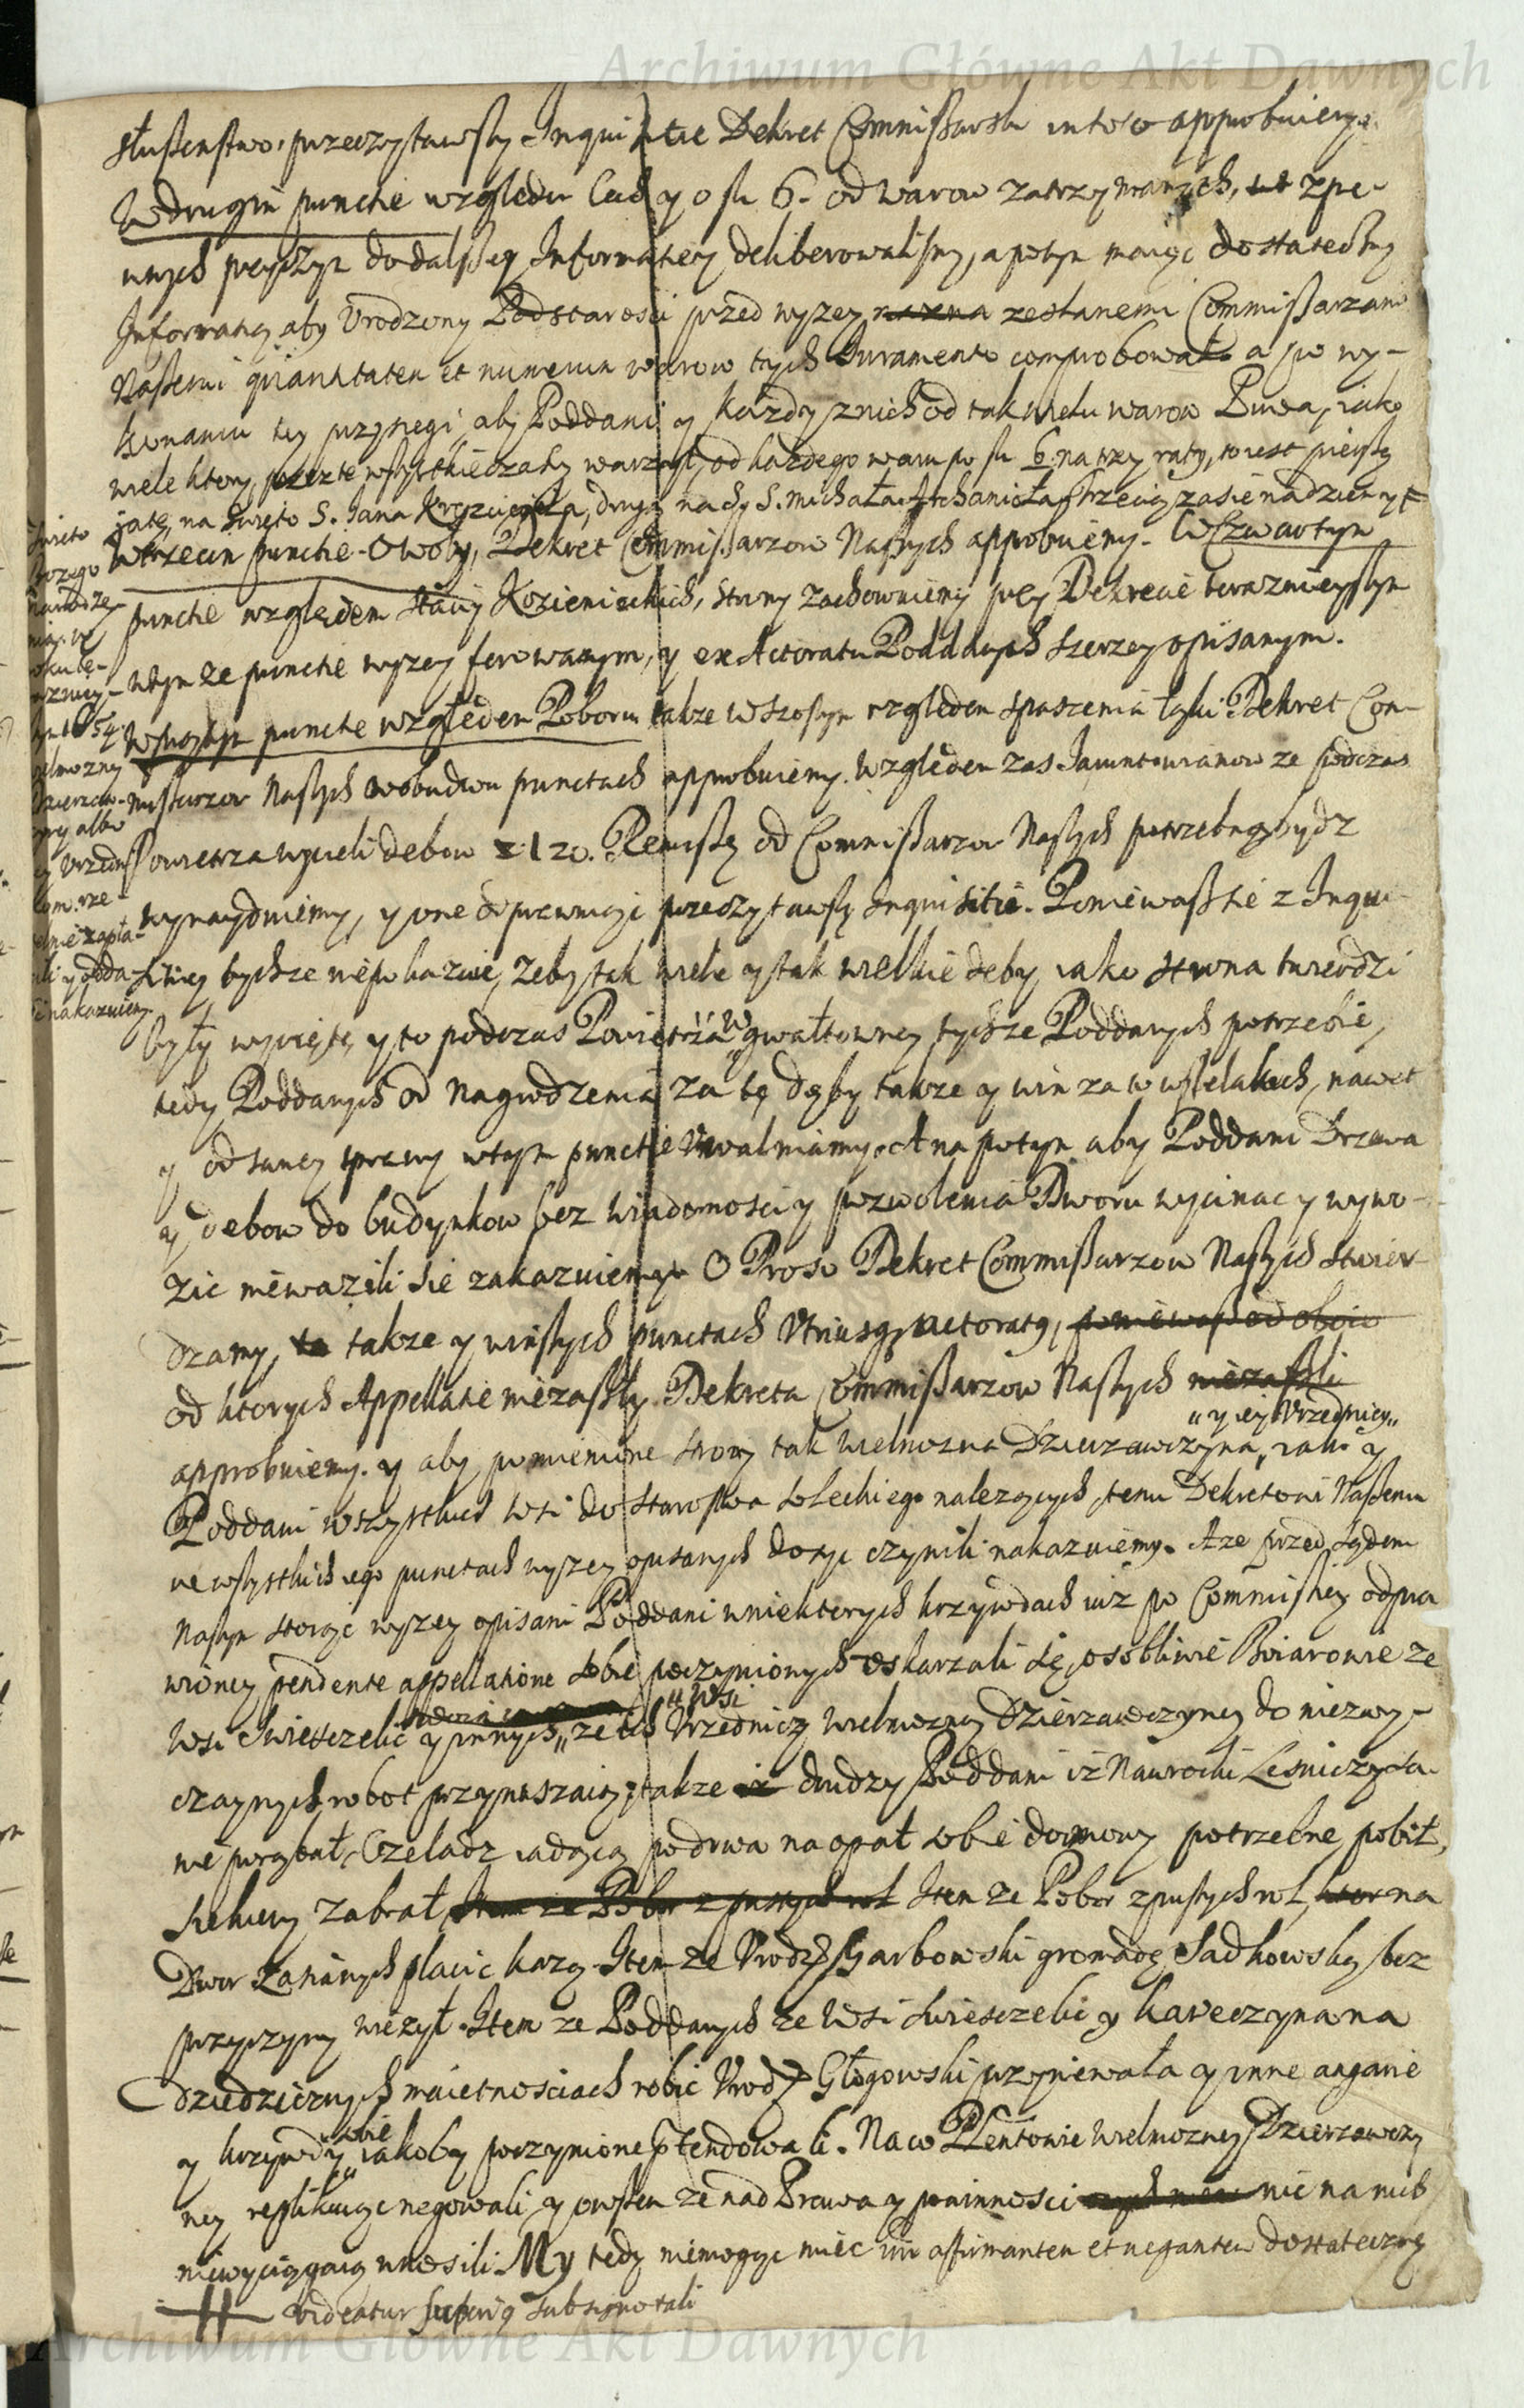 Archiwum Główne Akt Dawnych
słuszenstwo, przeczytawszy Inquisitie Dekret Commissarski in toto approbuiemy.
W drugim punctie względem Czd y o fl 6. od warow zatrzymanych, zpe-
wnych przyczyn do dalszey Informatiey deliberowalismy, a potym maiąc dostateczną
Informatią aby Urodzony Podstarosci przed wyzey zesłanemi Commissarzami
Naszemi quantitatem et numerum warow tych Iuramento comprobował a po wy-
konaniu tey przysięgi, aby Poddani y kazdy z nich od tak wielu warow Piwa, iako
wiele ktory przez te wszytkie czasy warzył, od kazdego waru po fl 6 na trzy raty, to iest pierwszą
ratę, na święto S. Iana Krzciciela, drugą na dz. S. Michała Archanioła, trzecią zasie na dzien
święto
Bozego
narodze-
nia w
roku te-
raznieyszym 1654
W trzecim punctie o Woły, Dekret Commissarzow Naszych approbuiemy. W Czwartym
punctie względem Stacij Kozienickich, strony zachowuiemy przy Dekrecie teraznieyszym
wtym ze punctie wyzey ferowanym, y ex Actoratu Poddanych szerzey opisanym.
W piątym punctie względem Poboru także w szostym względem spaszenia łąki Dekret Com-
wielmozney
dzierzaw-
czyny albo
iey Urzędnikom rze-
telnie zapła-
cili y oddali nakazuiemy.
missarzow Naszych w obudwu punctach approbuiemy. Względem zas Iawntowianow ze podczas
Powietrza wycieli debow 120. Remissę od Commissarzow Naszych potrzebną bydz
wynayduiemy, y one odprawuiąc przeczytawszy Inquisitie. Poniewasz sie z Inqui-
sitiey tychze nie pokazuie, zeby tak wiele y tak wielkie deby, iako strona twierdzi
były wycięte, y to podczas Powietrza w gwałtowney tychze Poddanych potrzebie,
tedy Poddanych od nagrodzenia za te dęby takze y win za to wszelakich, nawet
y od samey sprawy w tym punctie Uwalniamy. A na potym aby Poddani Drzewa
y debow do budynkow bez wiadomosci y pozwolenia Dworu wycinac y wywo-
zic nie wazili sie zakazuiemy. O Proso Dekret Commissarzow Naszych stwier-
dzamy, takze y w inszych punctach Utriusque actoratus, poniewasz od oboiu
od ktorych Appellatie nie zaszły. Dekreta Commissarzow Naszych nie zaszli
„y iey Urzednicy„
approbuiemy. y aby pomienione strony tak Wielmozna Dzierzawczyna, iako y
Poddani wszystkich wsi do Starostwa Soleckiego nalezących, temu Dekretowi Naszemu
we wszystkich iego punctach wyzey opisanych dosyc czynili nakazuiemy. A ze przed Sądem
Naszym stoiąc wyzey opisani Poddani w niektorych krzywdach iuz po Commissiey odpra
wioney pendente appellatione sobie poczynionych oskarzali sie, osobliwie Boiarowie ze
„Wsi
Wsi Swiesczelic y innych„ ze ich Urzednicy Wielmozney dzierzawczyney do niezwy-
czaynych robot przymuszaią, takze drudzy Poddani iz Nawrocki Lesniczy
nie porąbał, Czeladz iadącą po drwa na opał sobie domowy potrzebne, pobił,
siekiery zabrał, Item ze Pobor z pustych rol Item ze Pobor z pustych rol, na
Dwor zasianych placic kazą. Item ze Urodz. Garbowski gromadę Sadkowską bez
przyczyny wiezył. Item ze Poddanych ze Wsi Swiesczelic y Kareczyna na
dziedzicznych maietnosciach robic Urodz. Głogowski przyniewała y inne angarie
sobie
y krzywdy „ iakoby poczynione praetendowali. Na co Plentonie Wielmozney Dzierzawczy
ney replikuiąc negowali, y owszem ze nad Prawa y powinnosci nic na nich
nie wyciągaią wnosili. My tedy niemogąc miec inter affirmantem et negantem dostateczney
videatur superius subsigno tali
Archiwum Główne Akt Dawnych